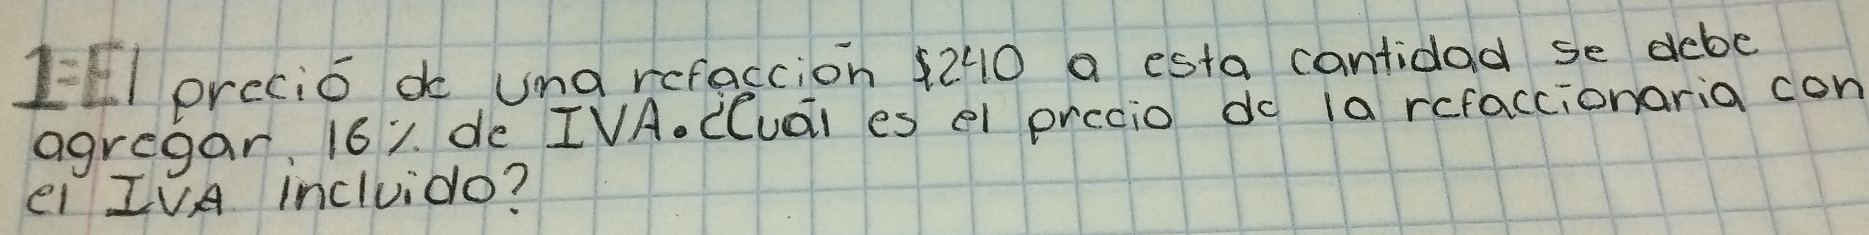 1=El preció de una refacción $240 a esta cantidad se debe
agregar, 16% de IVA. ¿Cuál es el precio de la refaccionaria con
el IVA incluido?